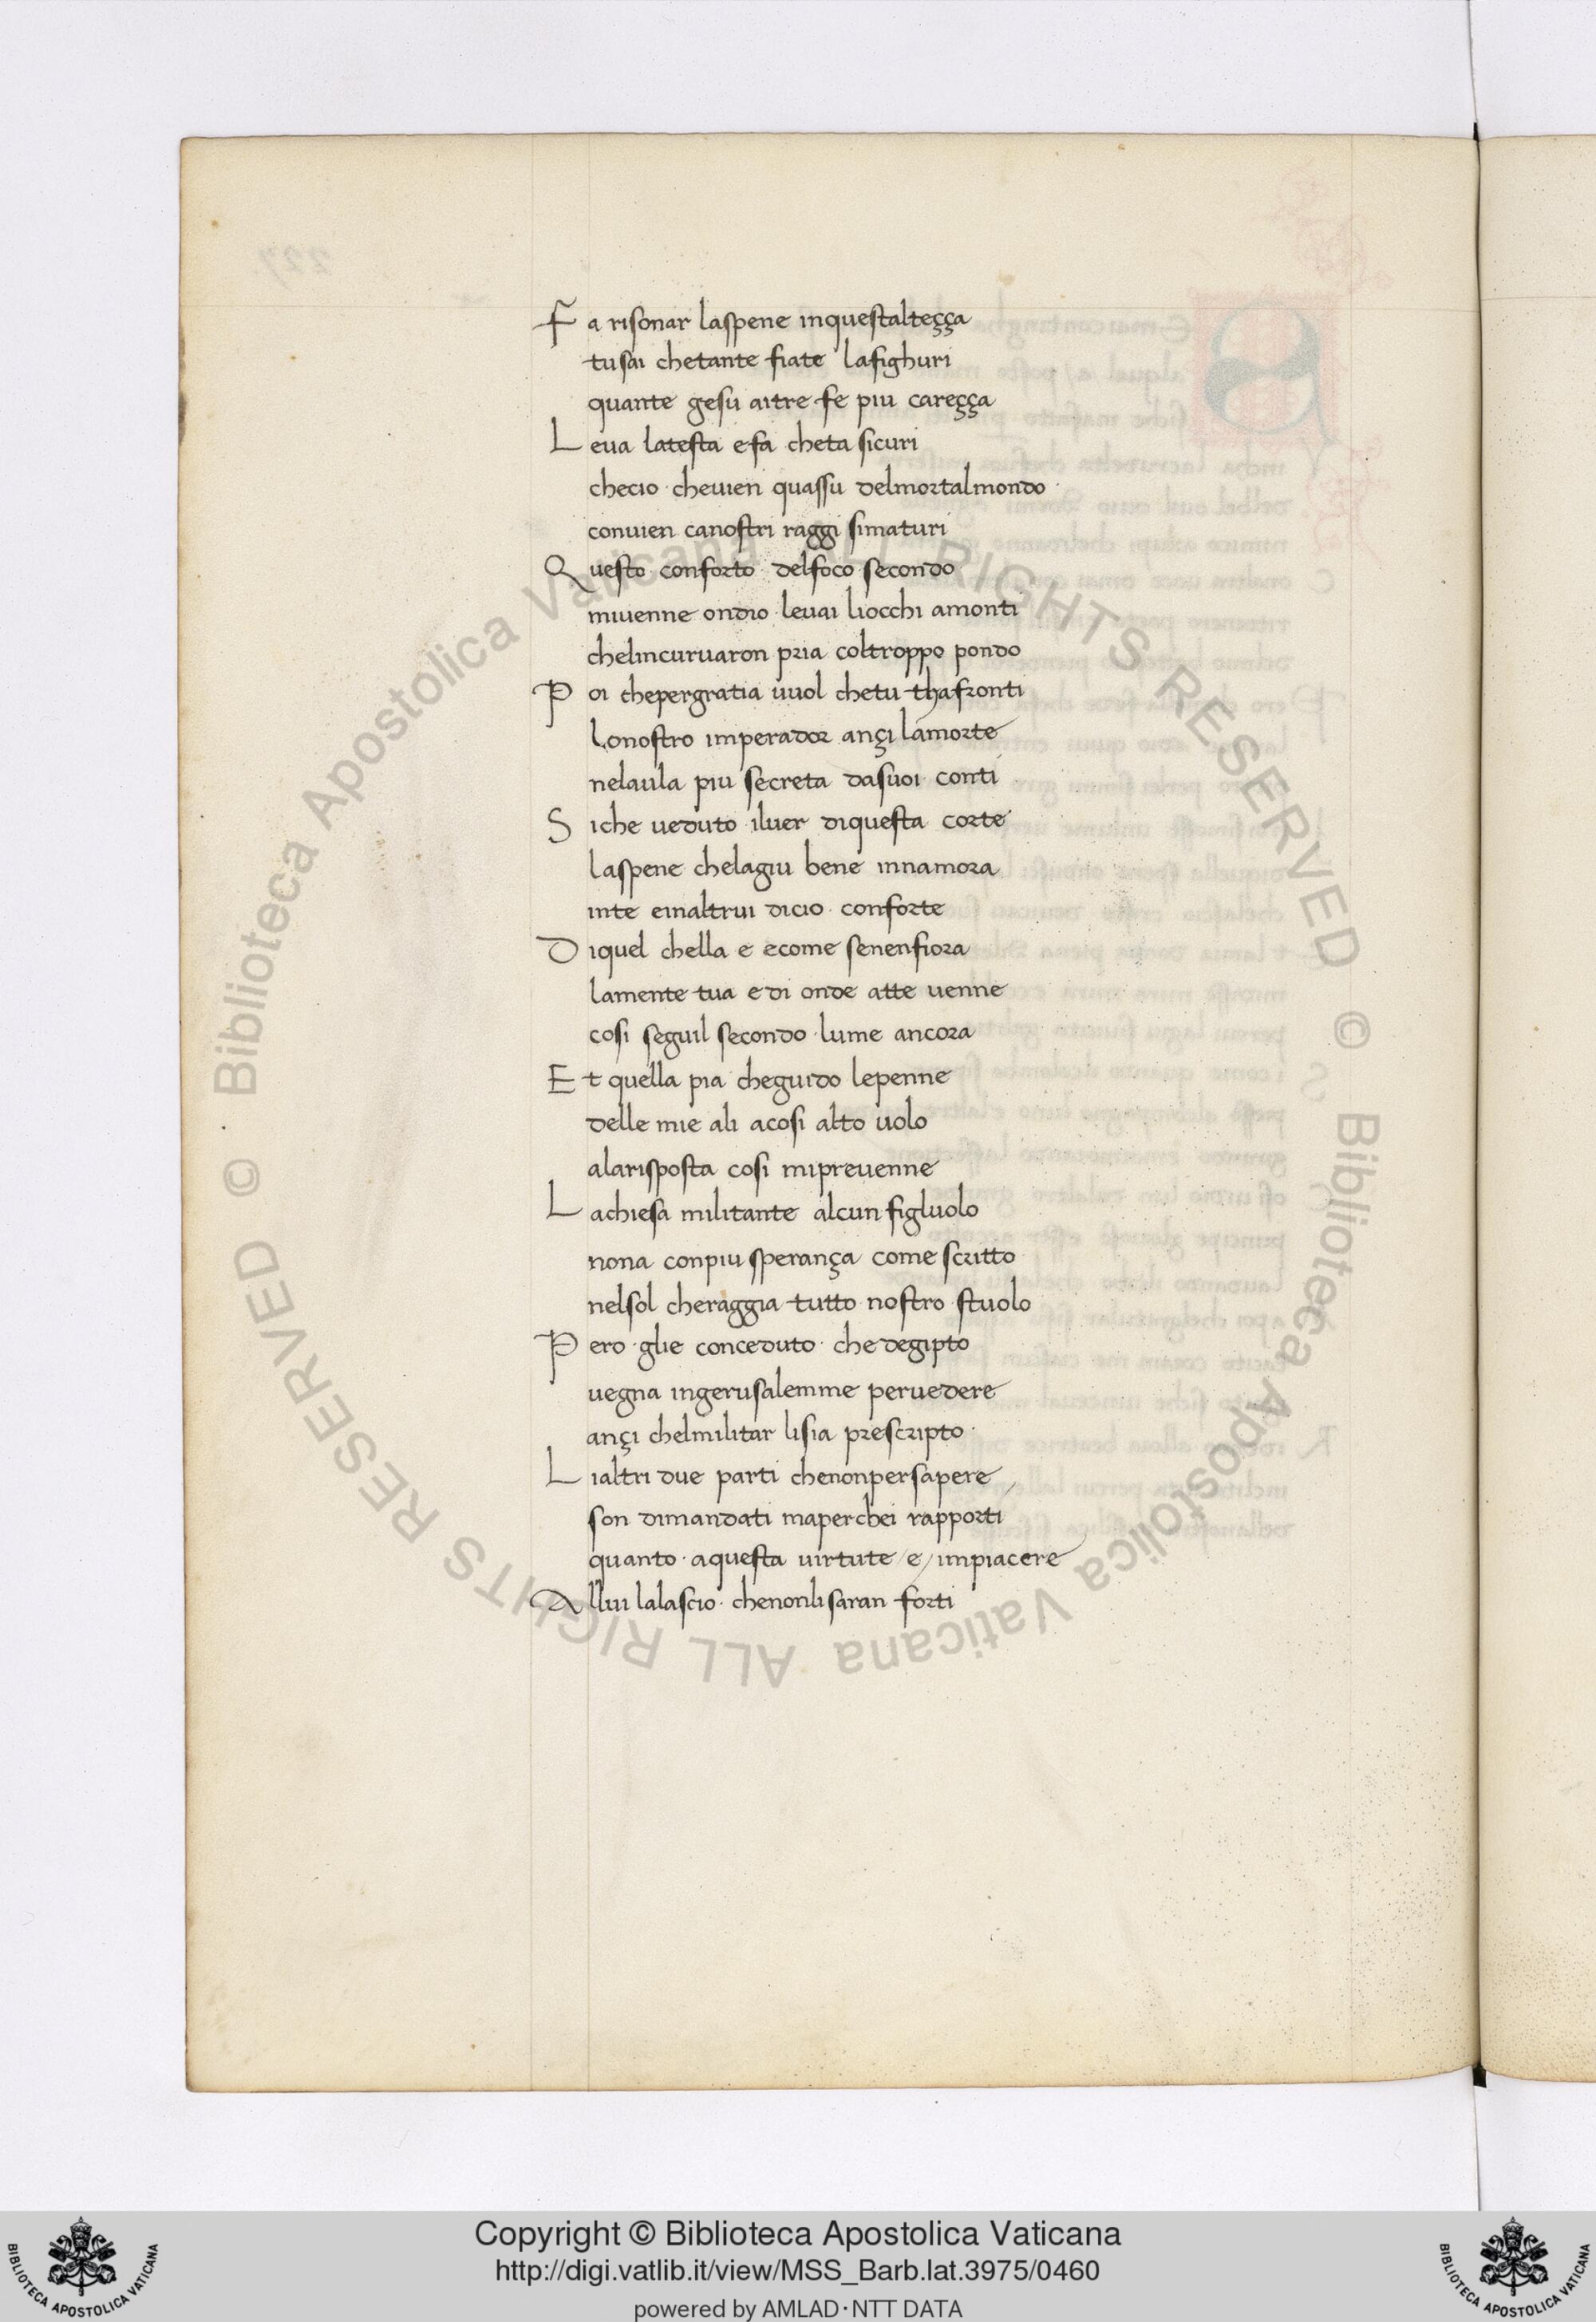 Fa risonar laspene inquestalteçça
tusai chetante fiate lafighuri
quante gesu aitre fe piu careçça
Leua latesta efa cheta sicuri
checio cheuien quassu delmortalmondo
conuien canostri raggi simaturi
Questo conforto delfoco secondo
miuenne ondio leuai liocchi amonti
chelincuruaron pria coltroppo pondo
Poi chepergratia uuol chetu thafronti
lonostro imperador ançi lamorte
nelaula piu secreta dasuoi conti
Siche ueduto iluer diquesta corte
laspene chelagiu bene innamora
inte einaltrui dicio conforte
Diquel chella e ecome senenfiora
lamente tua e di onde atte uenne
cosi seguil secondo lume ancora
Et quella pia cheguido lepenne
delle mie ali acosi alto uolo
alarisposta cosi mipreuenne
Lachiesa militante alcun figluolo
nona conpiu sperança come scritto
nelsol cheraggia tutto nostro stuolo
Pero glie conceduto che degipto
uegna ingerusalemme peruedere
ançi chelmilitar lisia prescripto
Lialtri due parti chenonpersapere
son dimandati maperchei rapporti
quanto aquesta uirtute /e/ impiacere
Allui lalascio chenonli saran forti
© Biblioteca Apostolica Vaticana ALL RIGHTS RESERVED © Biblioteca Apostolica Vaticana ALL RIGHTS RESERVED
Copyright © Biblioteca Apostolica Vaticana
http://digi.vatlib.it/view/MSS_Barb.lat.3975/0460
powered by AMLAD·NTT DATA
BIBLIOTECA APOSTOLICA VATICANA
BIBLIOTECA APOSTOLICA VATICANA